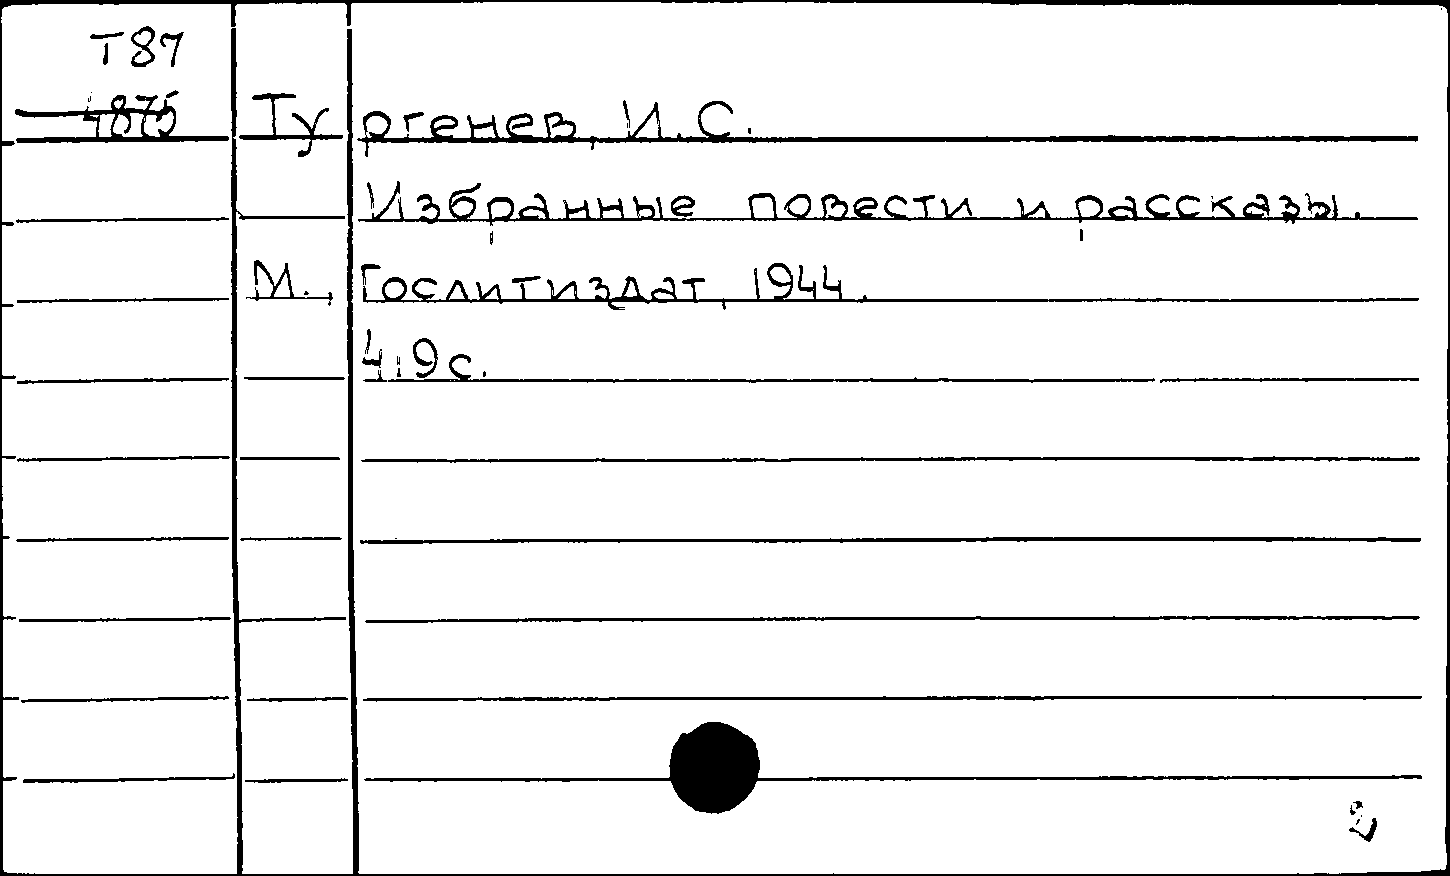 Т87
4875
Тургенев, И.С.
Избранные повести и рассказы.
М., Гослитиздат, 1944.
419с.
2